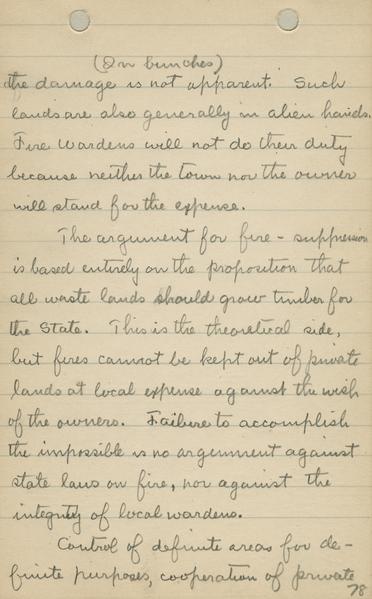 (On bunches)
the damage is not apparent. Such
lands are also generally in alien hands.
Fire Wardens will not do their duty
because neither the town nor the owner
will stand for the expense.
The argument for fire-suppression
is based entirely on the proposition that
all waste lands should grow timber for
the State. This is the theoretical side,
but fires cannot be kept out of private
lands at local expense against the wish
of the owners. Failure to accomplish
the impossible is no argument against
state laws on fire, nor against the
integrity of local wardens.
Control of definite areas for de-
finite purposes, cooperation of private
78